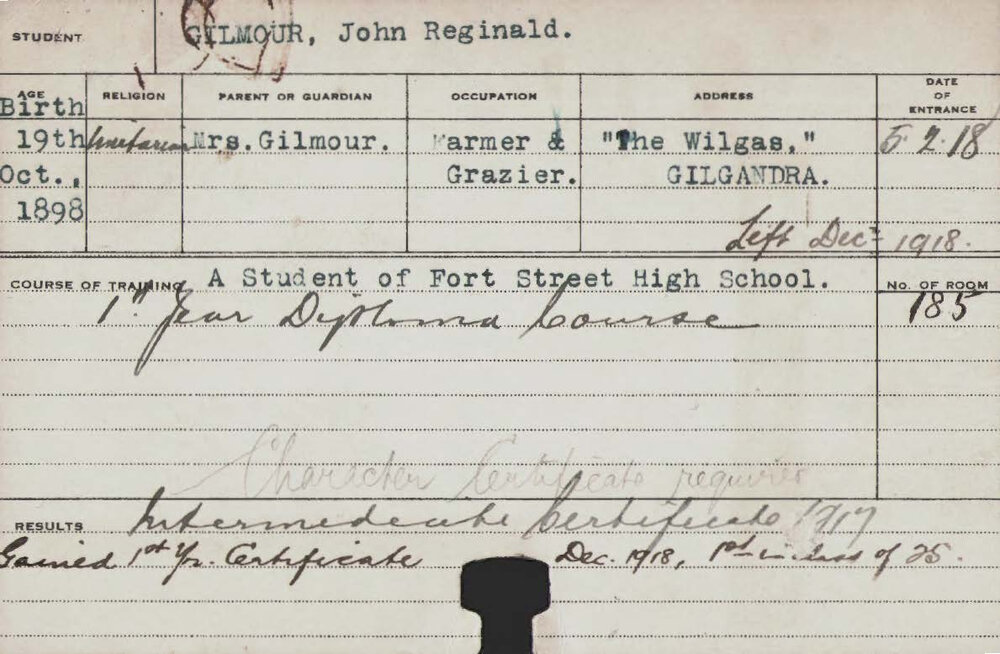 STUDENT GILMOUR, John Reginald.
AGE RELIGION PARENT OR GUARDIAN OCCUPATION ADDRESS DATE OF ENTRANCE
Birth
19th Unitarian Mrs. Gilmour. Farmer & "The Wilgas," 5.2.18
Oct., Grazier. GILGANDRA.
1898
Left Dec 1918.
COURSE OF TRAINING A Student of Fort Street High School. No. OF ROOM
1st Year Diploma Course 185
Character Certificate required
RESULTS Intermediate Certificate 1917
Gained 1st Yr. Certificate Dec. 1918, 1st in class of 25.